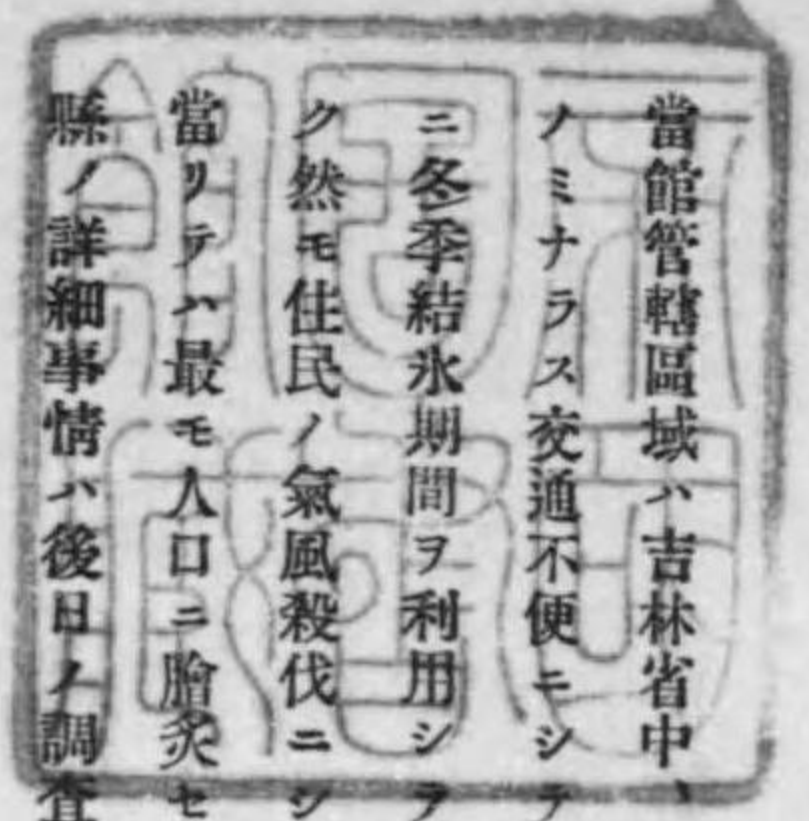 當館管轄區域ハ吉林省中、
ノミナラス交通不便ニシテ
ニ冬季結氷期間ヲ利用シテ
ク然モ住民ノ氣風殺伐ニシ
當リテハ最モ人口ニ膾炙セ
縣ノ詳細事情ハ後日ノ調査